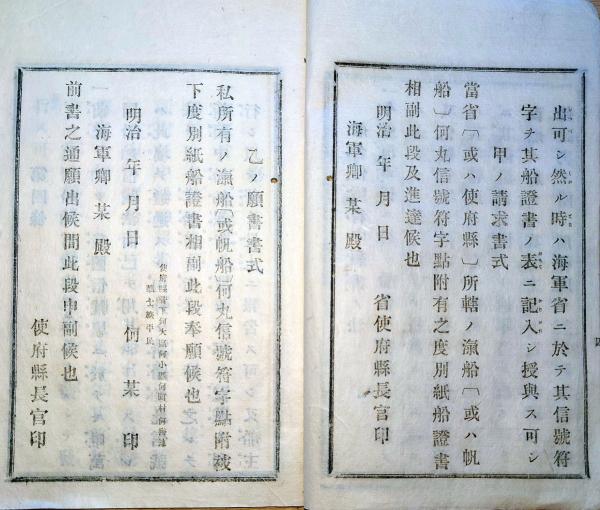 出可シ然ル時ハ海軍省ニ於テ其信號符
字ヲ其船證書ノ表ニ記入シ授與ス可シ
甲ノ請求書式
當省〔或ハ使府縣〕所轄ノ滊船〔或ハ帆
船〕何丸信號符字點附有之度別紙船證書
相副此段及進達候也
明治 年 月 日 省使府縣長官印
海軍卿 某 殿
乙ノ願書書式
私所有ノ滊船〔或帆船〕何丸信號符字點附被
下度別紙船證書相副此段奉願候也
使府縣管下何大區何小區何町村何番地
士族平民
明治 年 月 日 何 某 印
海軍卿 某 殿
前書之通願出候間此段申副候也
使府縣長官印